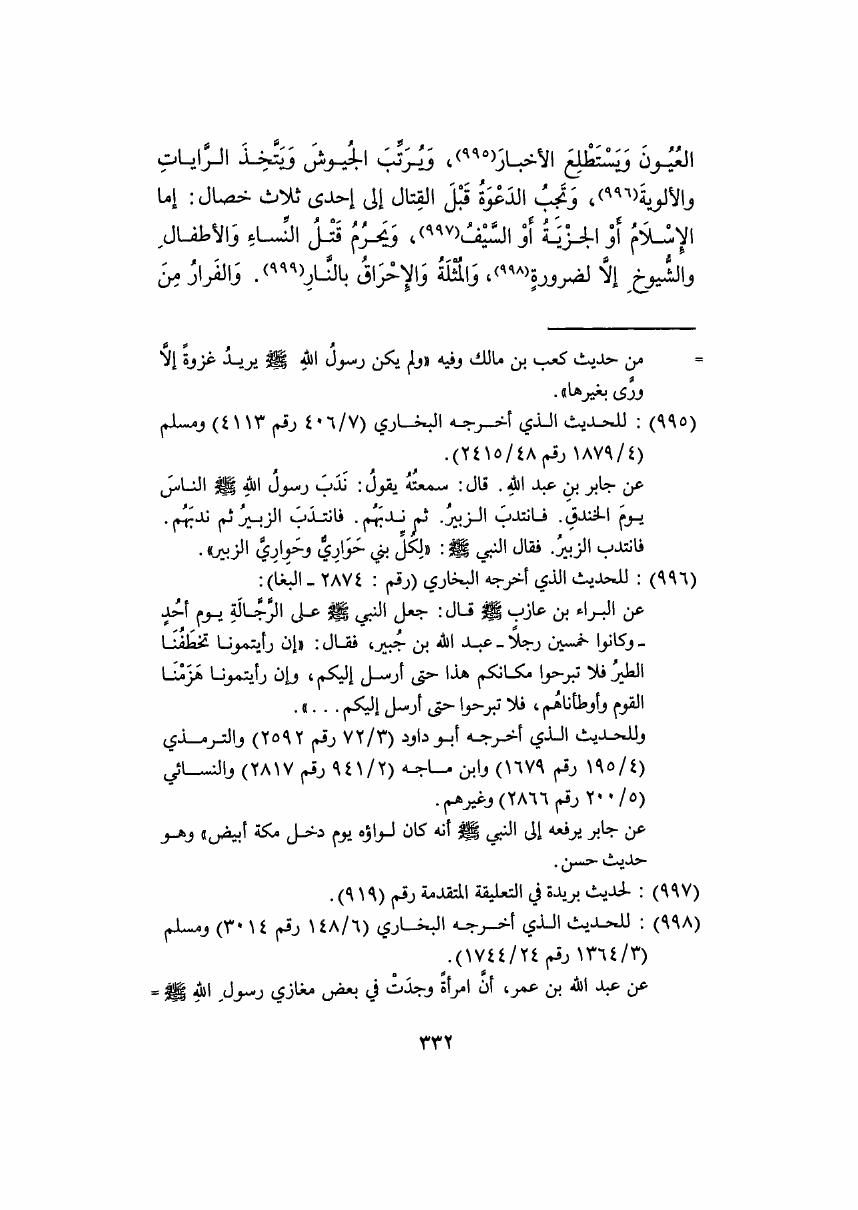 العُيُونَ وَيَسْتَطْلِعَ الأخبارَ(٩٩٥)، وَيُرَتِّبَ الجُيوشَ وَيَتَّخِذَ الرَّاياتِ
والألويةَ(٩٩٦)، وَتَجِبُ الدَعْوَةُ قَبْلَ القِتال إلى إحدى ثلاث خصال: إما
الإِسْلَامُ أَوْ الجِزْيَةُ أَوْ السَّيْفُ(٩٩٧)، وَيَحرُمُ قَتْلُ النِّساءِ وَالأطفالِ
والشُّيوخِ إلَّا لضرورةٍ(٩٩٨)، وَالمُثْلَةُ وَالإِحْرَاقُ بالنَّارِ(٩٩٩). وَالفَرارُ مِنَ
= من حديث كعب بن مالك وفيه «ولم يكن رسولُ اللهِ ﷺ يريدُ غزوةً إلَّا
ورَّى بغيرها».
(٩٩٥) : للحديث الذي أخرجه البخاري (٤٠٦/٧ رقم ٤١١٣) ومسلم
(١٨٧٩/٤ رقم ٢٤١٥/٤٨).
عن جابر بنِ عبد اللهِ. قال: سمعتُهُ يقولُ: نَدَبَ رسولُ اللهِ ﷺ الناسَ
يومَ الخندقِ. فانتدبَ الزبيرُ. ثم ندبَهُم. فانتدَبَ الزبيرُ ثم ندبَهُم.
فانتدب الزبيرُ. فقال النبي ﷺ: «لِكُلِّ بني حَوَارِيٌّ وحَوارِيَّ الزبير».
(٩٩٦) : للحديث الذي أخرجه البخاري (رقم : ٢٨٧٤ ـ البغا):
عن البراء بن عازب ﷺ قال: جعل النبي ﷺ على الرَّجَّالَةِ يوم أحُدٍ
ـ وكانوا خمسين رجلاً ـ عبد الله بن جُبير، فقال: «إن رأيتمونا تخطَفُنَا
الطيرُ فلا تبرحوا مكانكم هذا حتى أرسل إليكم، وإن رأيتمونا هَزَمْنَا
القوم وأوطأناهُم، فلا تبرحوا حتى أرسل إليكم...».
وللحديث الذي أخرجه أبو داود (٧٢/٣ رقم ٢٥٩٢) والترمذي
(١٩٥/٤ رقم ١٦٧٩) وابن ماجه (٩٤١/٢ رقم ٢٨١٧) والنسائي
(٢٠٠/٥ رقم ٢٨٦٦) وغيرهم.
عن جابر يرفعه إلى النبي ﷺ أنه كان لواؤه يوم دخل مكة أبيض» وهو
حديث حسن.
(٩٩٧) : لحديث بريدة في التعليقة المتقدمة رقم (٩١٩).
(٩٩٨) : للحديث الذي أخرجه البخاري (١٤٨/٦ رقم ٣٠١٤) ومسلم
(١٣٦٤/٣ رقم ١٧٤٤/٢٤).
عن عبد الله بن عمر، أنَّ امرأةً وجدَتْ في بعض مغازي رسولِ اللهِ ﷺ =
٣٣٢